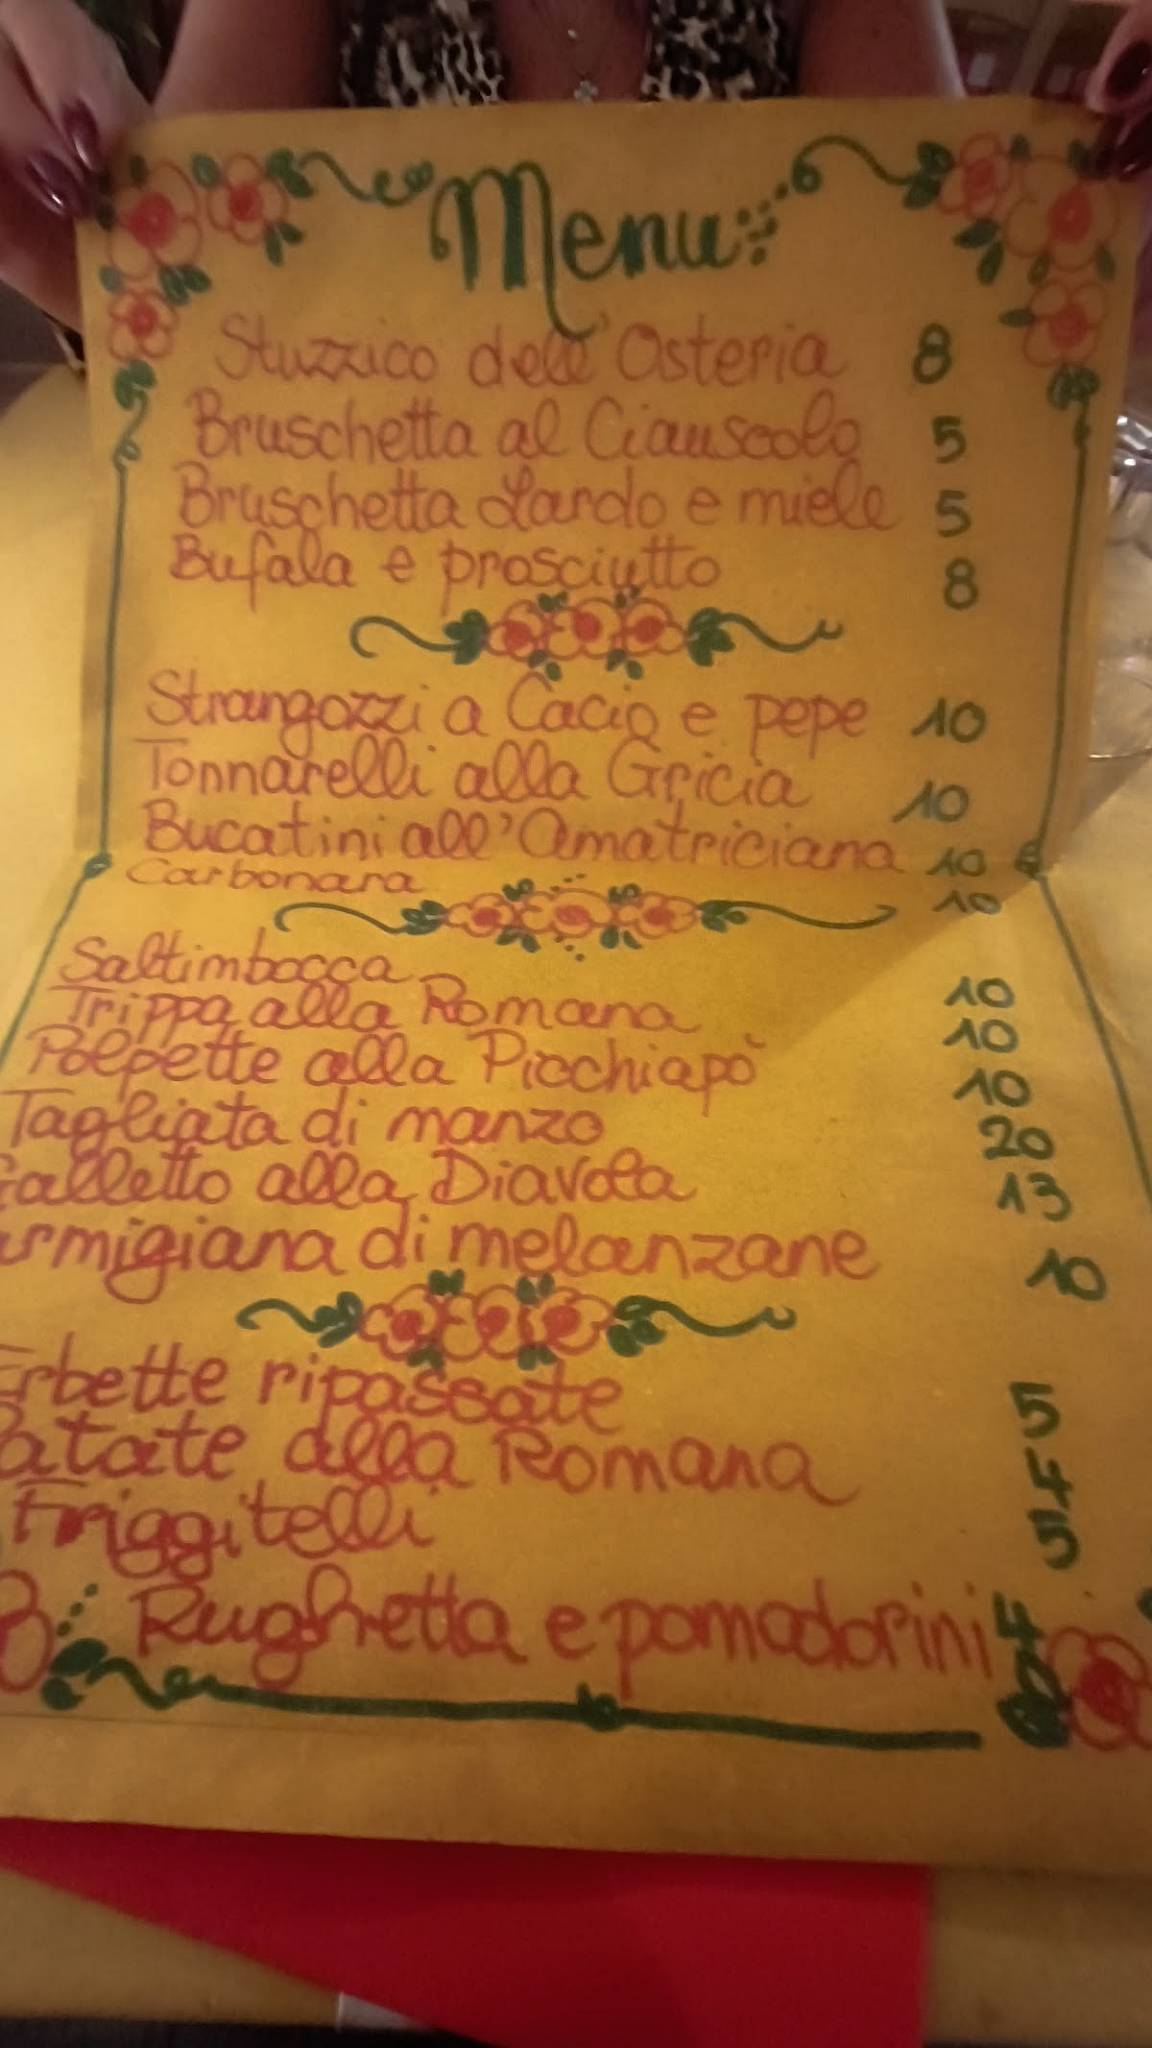 Menu
Stuzzico dell'Osteria 8
Bruschetta al Ciauscolo 5
Bruschetta Lardo e miele 5
Bufala e prosciutto 8
Strangozzi a Cacio e pepe 10
Tonnarelli alla Gricia 10
Bucatini all'Amatriciana 10
Carbonara 10
Saltimbocca 10
Trippa alla Romana 10
Polpette alla Picchiapò 10
Tagliata di manzo 20
Galletto alla Diavola 13
armigiana di melanzane 10
Erbette ripassate 5
Patate alla Romana 4
Friggitelli 5
Rughetta e pomodorini 4